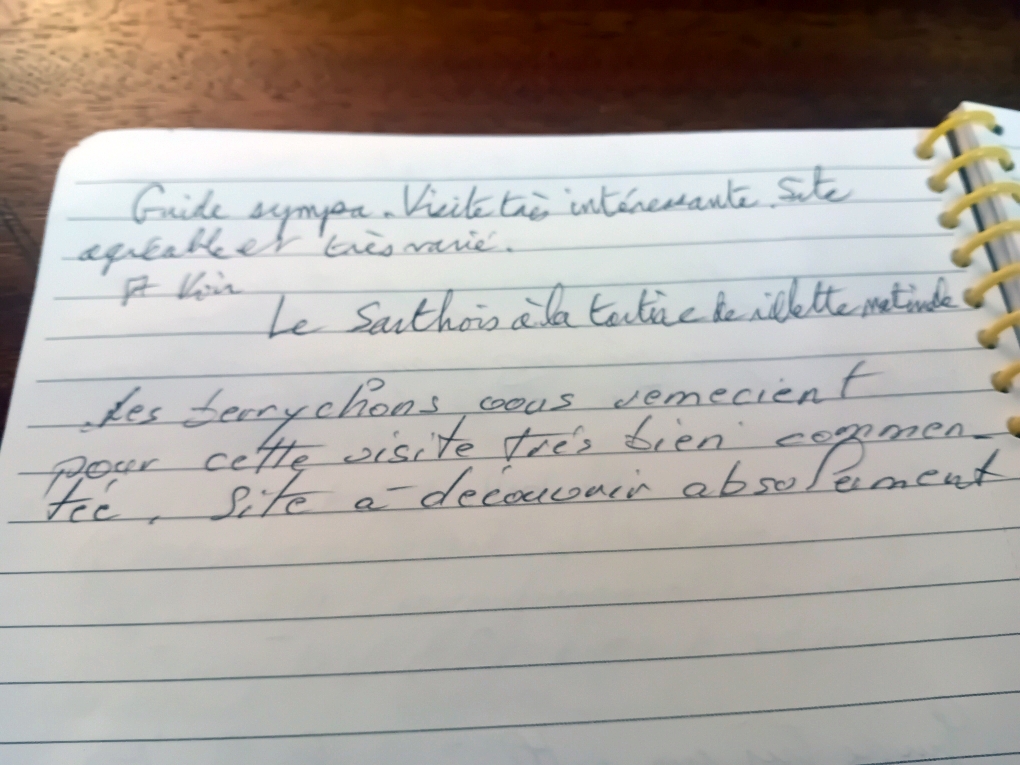 Guide sympa. Visite très intéressante. Site
agréable et très varié.
A Voir
Le Sarthois à la tartine de rillette matinale
Les berrychons vous remecient
pour cette visite très bien commen-
tée, Site à découvrir absolument